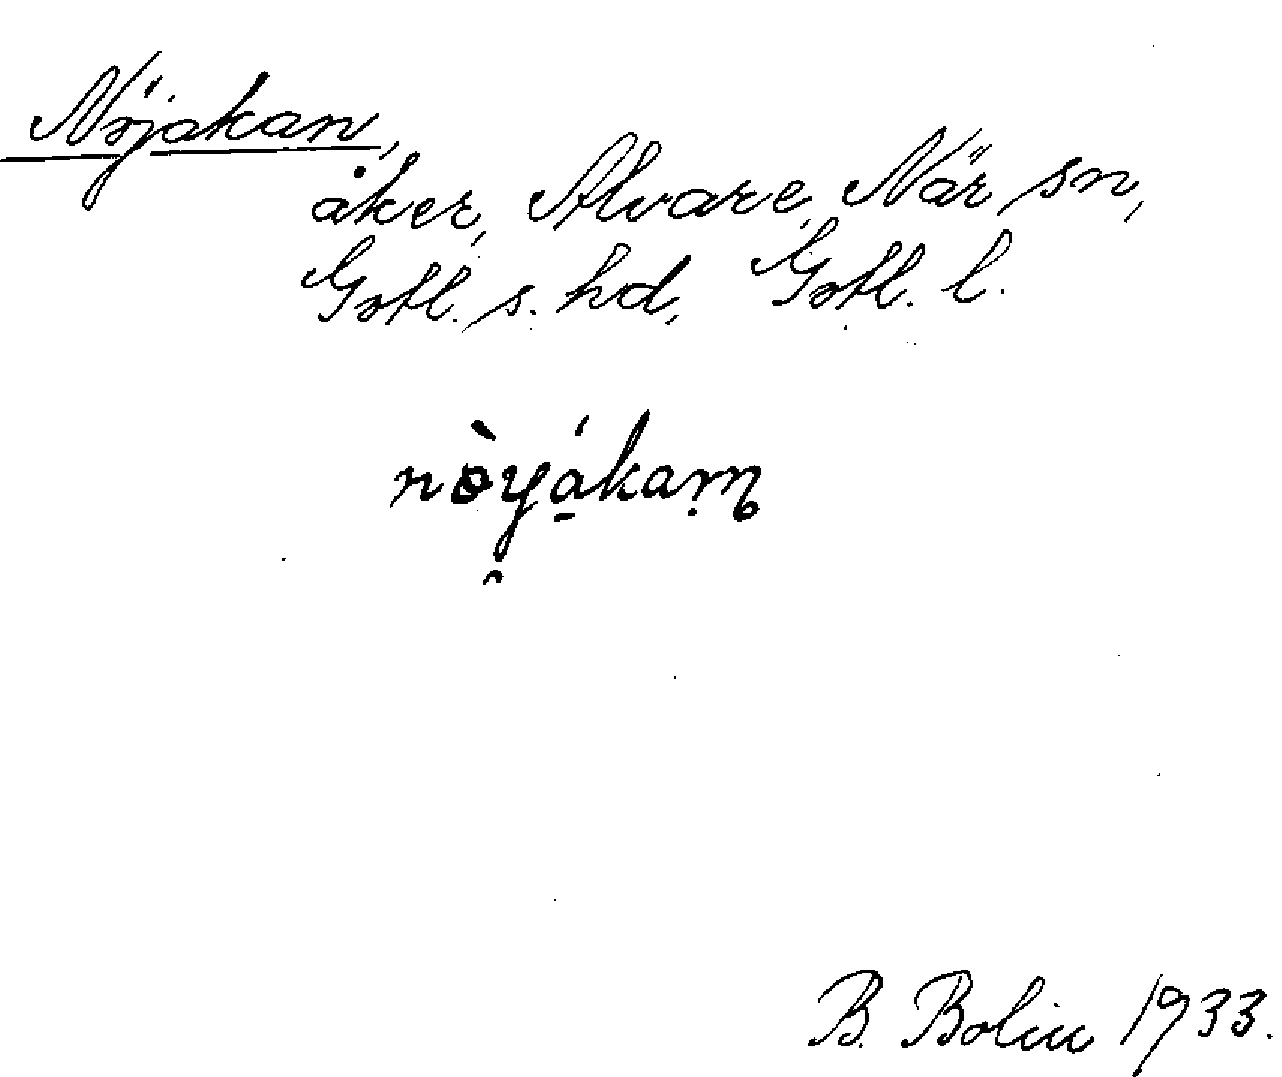 Nöjakan,
åker, Alvare, När sn,
Gotl. s. hd, Gotl. l.
B. Bolin 1933.